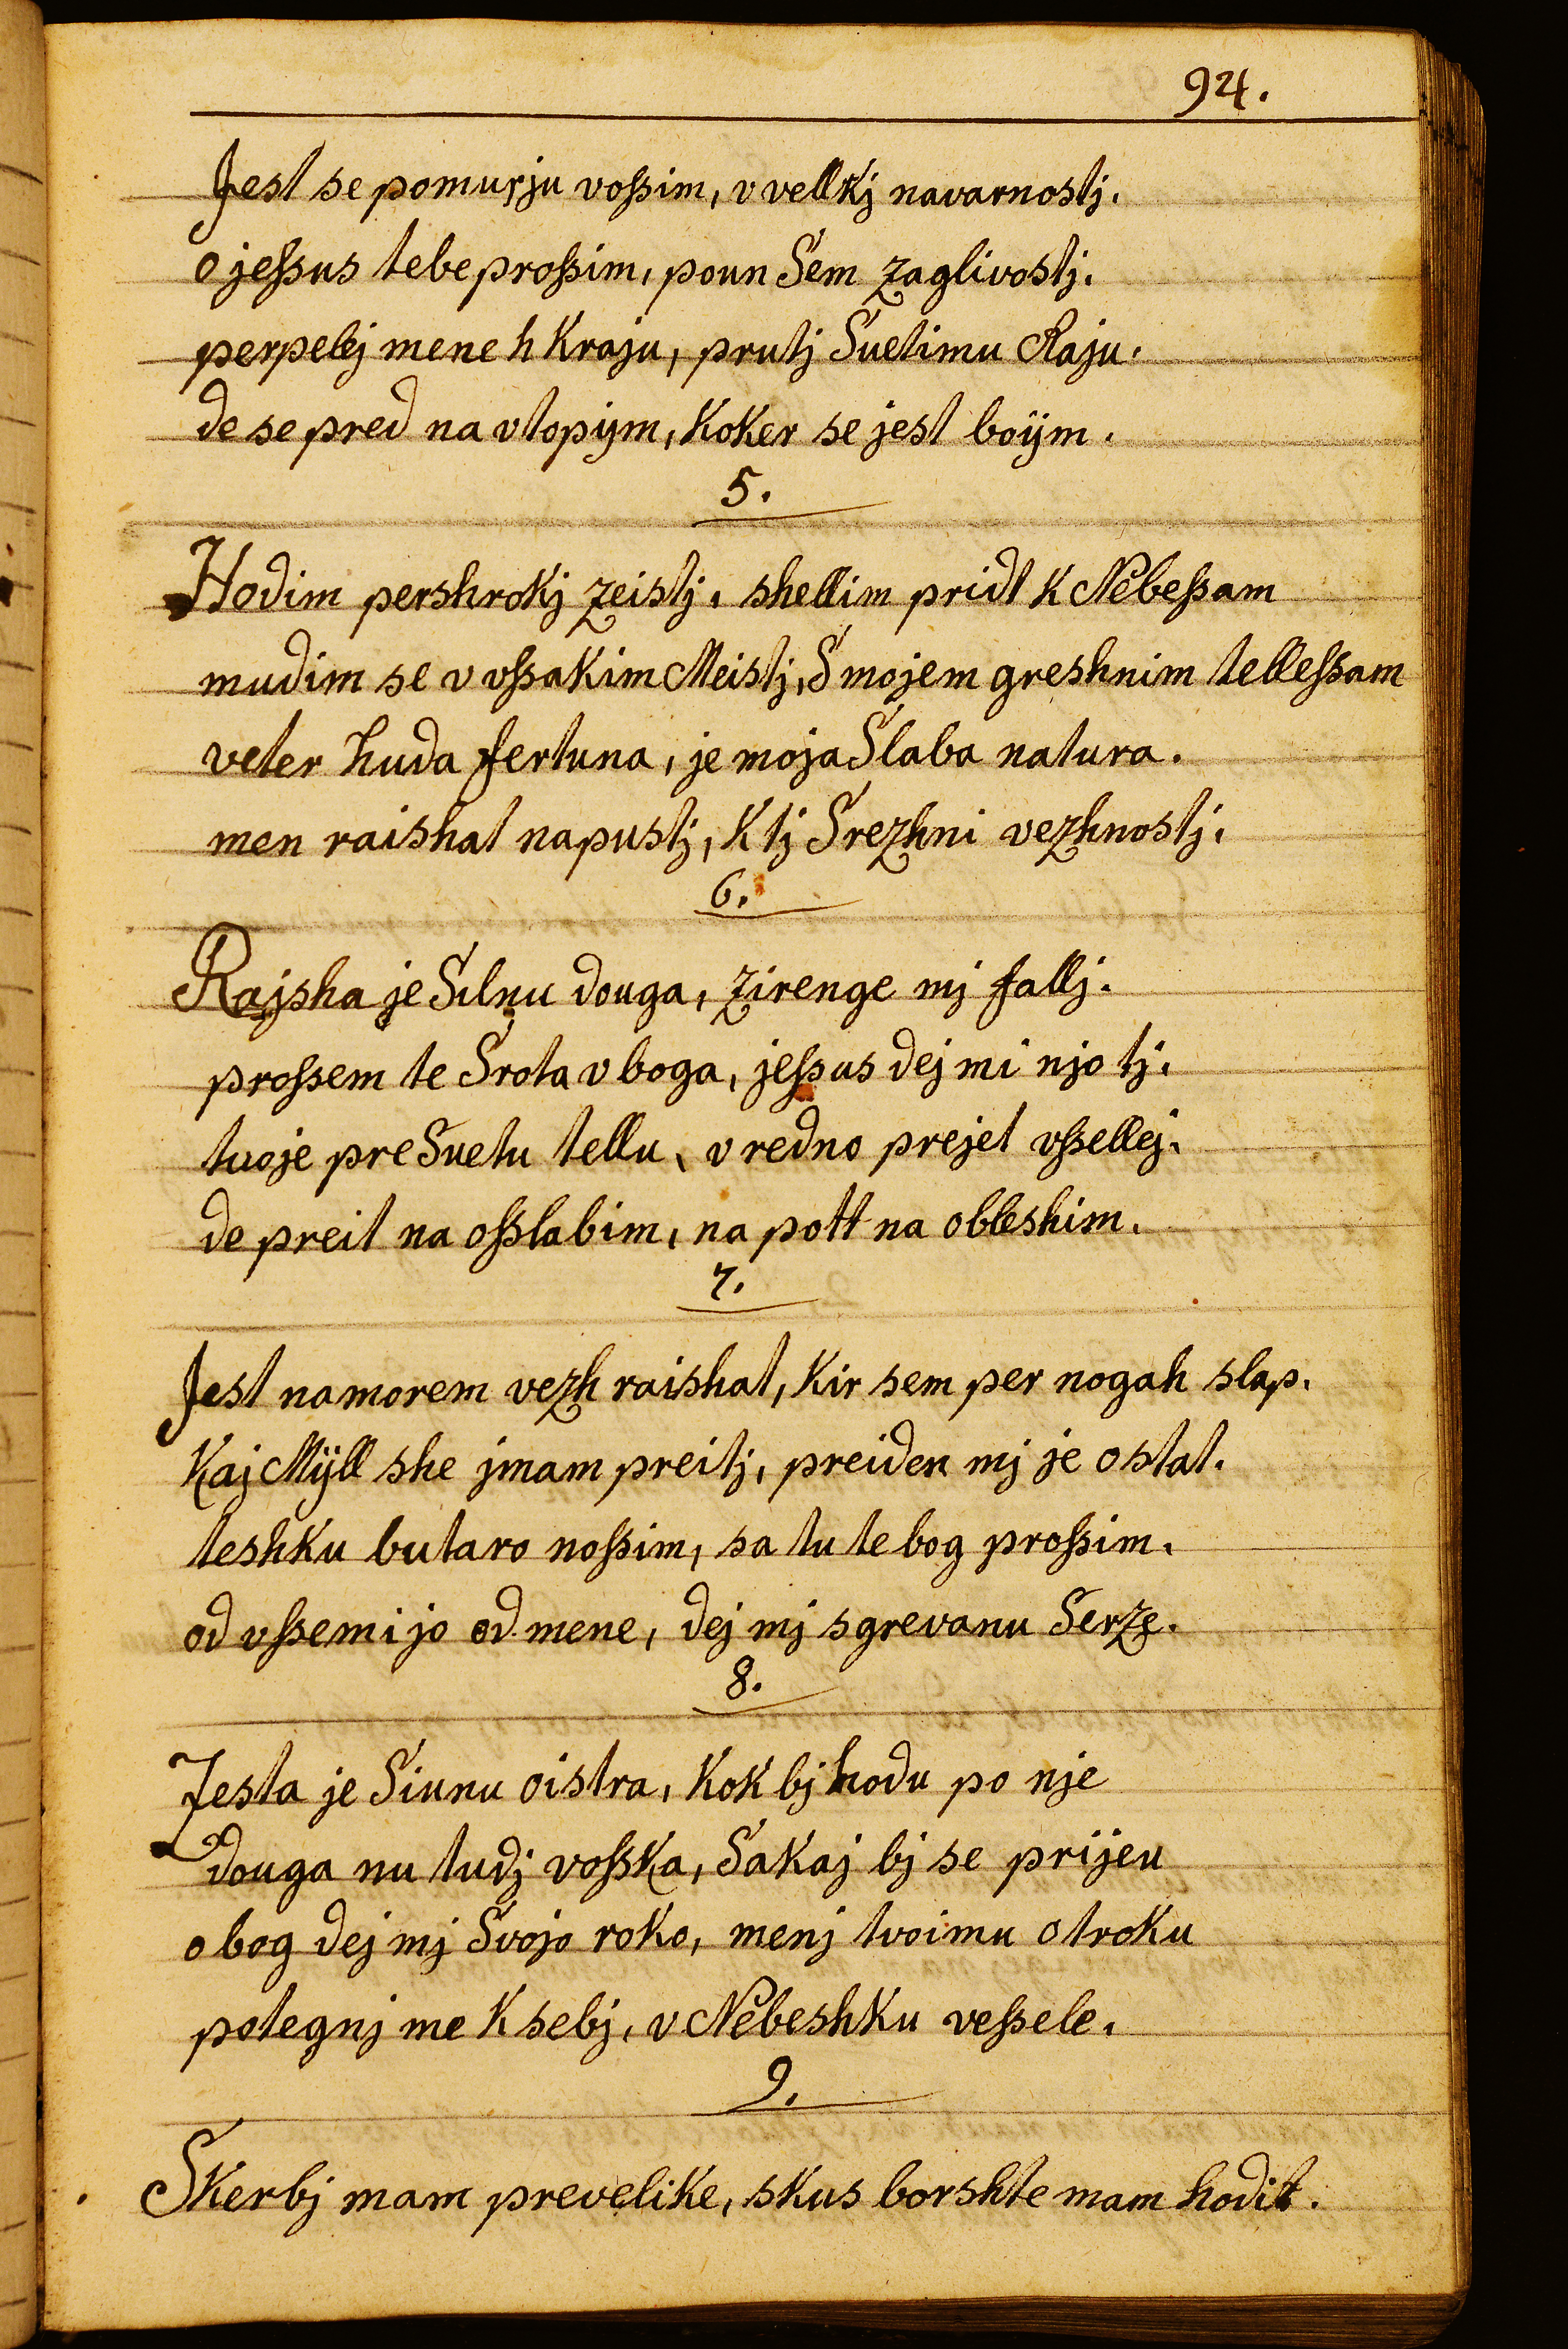 94.
Jest se pomurju voſsim, v vellkj navarnostj.
o jeſsus tebe proſsim, poun Sem zaglivostj.
perpelej mene h Kraju, prutj Suetimu Raju.
de se pred na vtopijm, Koker se jest boijm.
5.
Hodim pershrokj zeistj, shellim pridt K Nebeſsam
mudim se v vſsakim Meistj, S mojem greshnim telleſsam
veter huda fertuna, je moja Slaba natura.
men raishat napustj, K tj Srezhni vezhnostj.
6.
Rajsha je Silnu douga, zirenge mj fallj.
proſsem te Srota v boga, jeſsus dej mi njo tj.
tuoje preSuetu tellu, v redno prejet vſsellej.
de preit na oſslabim, na pott na obleshim.
7.
Jest na morem vezh raishat, Kir sem per nogah slap.
Kaj Mÿll she jmam preitj, preiden mj je ostat.
teshku butaro noſsim, sa tu te bog proſsim.
od vſsemi jo od mene, dej mj sgrevanu Serze.
8.
Zesta je Siunu oistra, Kok bj hodu po nje
douga nu tudj voſska, Sakaj bj se prijeu
o bog dej mj Svojo roko, menj tvoimu otroku
potegnj me K sebj, v Nebeshku veſsele.
9.
Skerbj mam prevelike, skus borshte mam hodit.